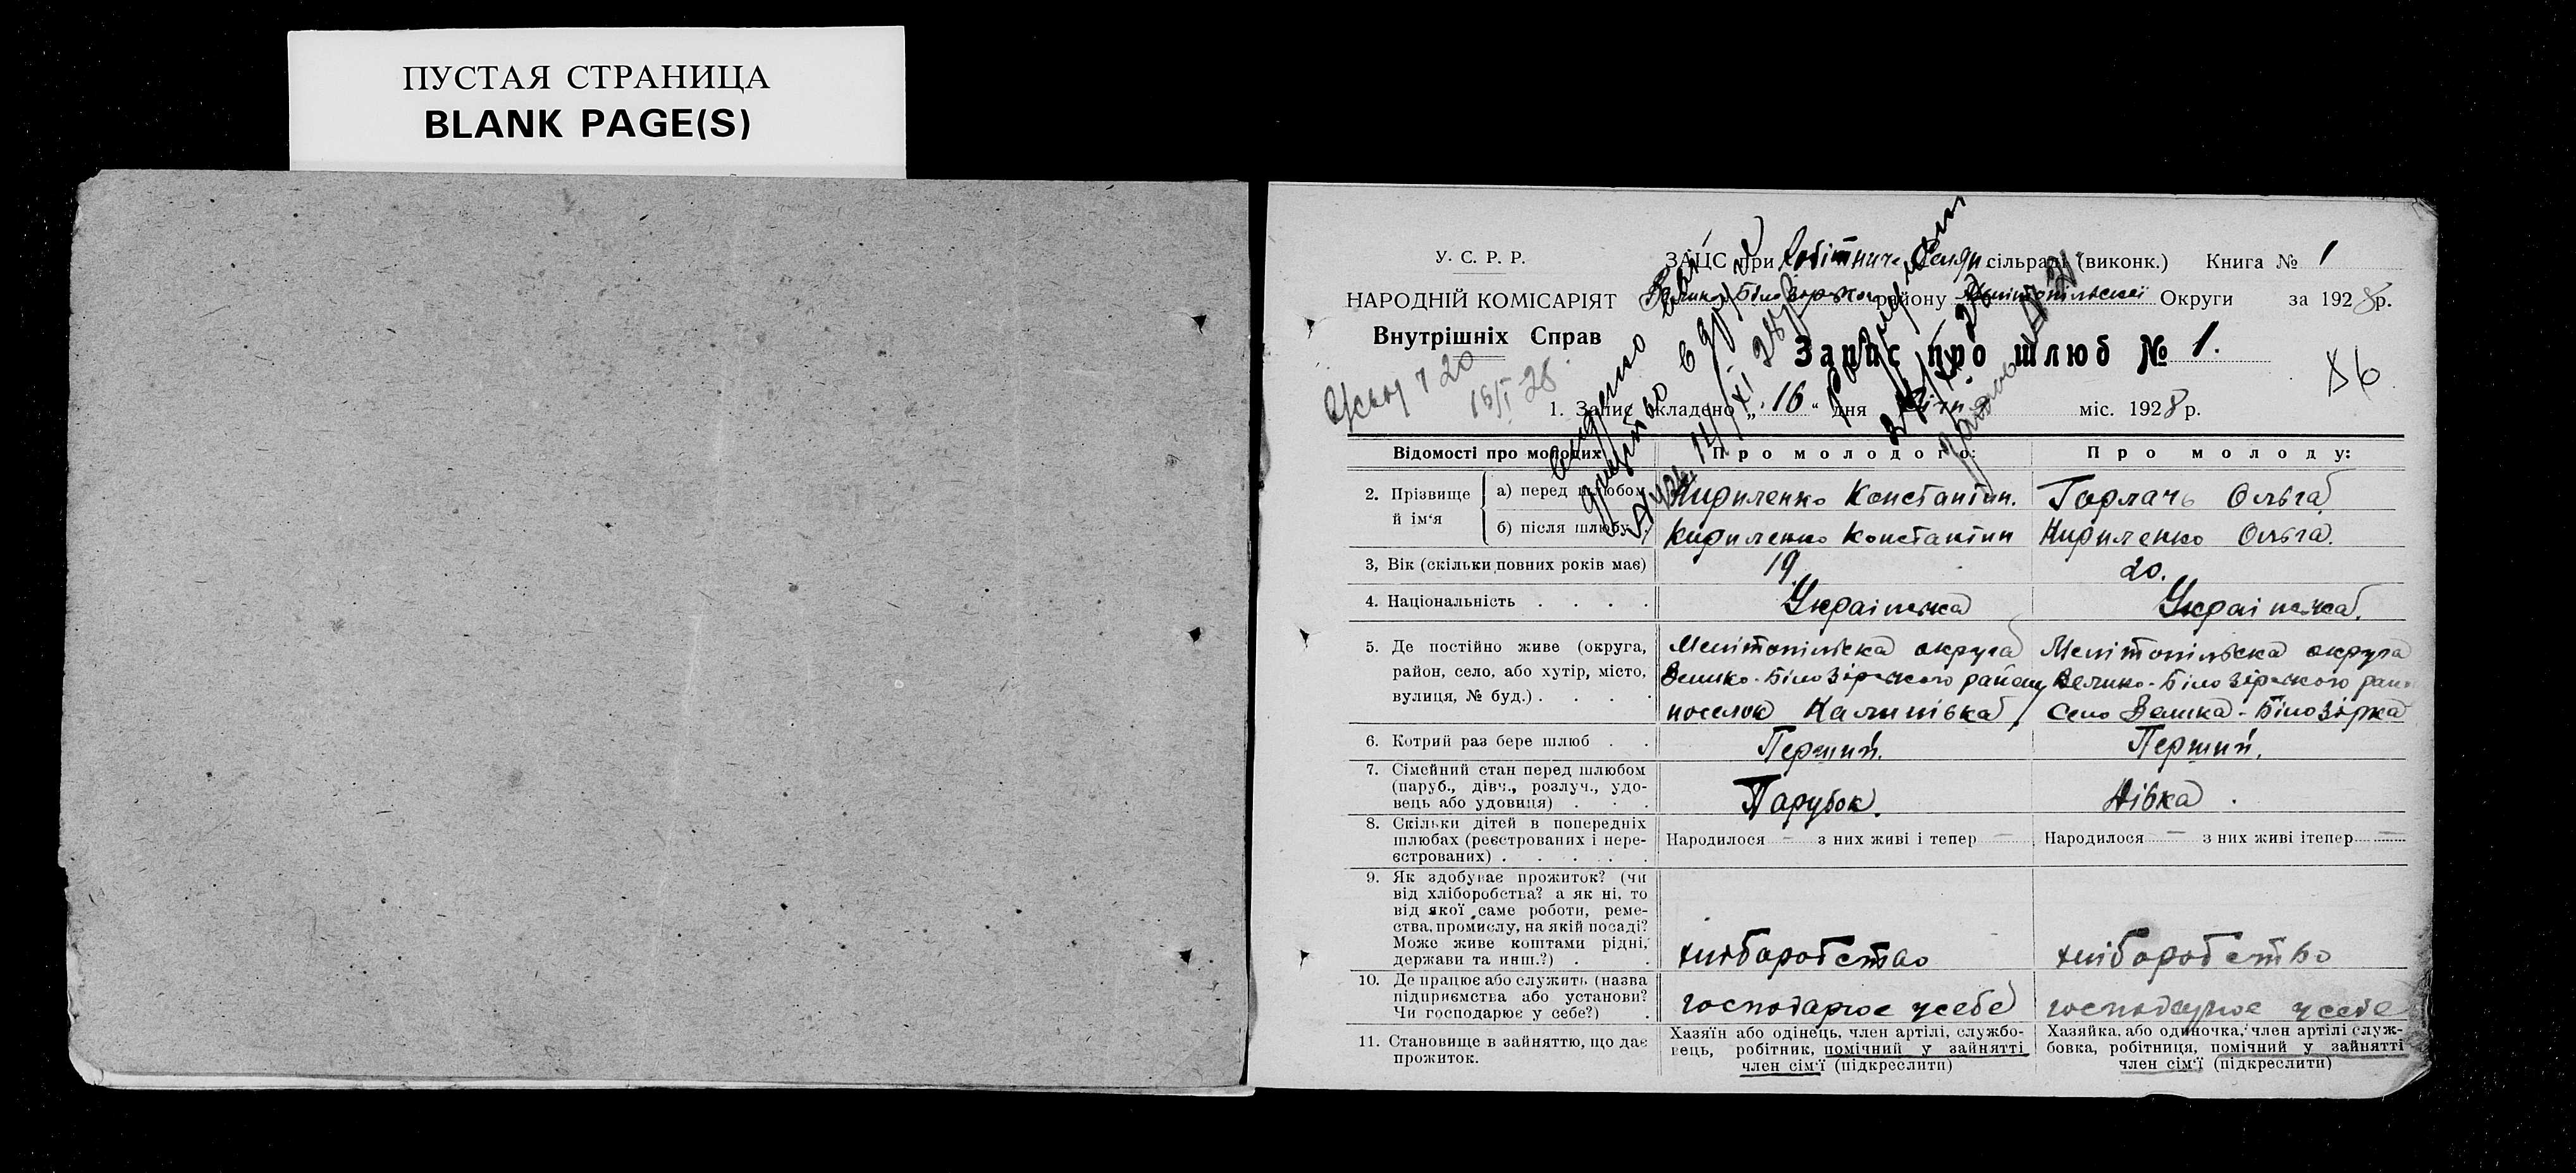 ПУСТАЯ СТРАНИЦА
BLANK PAGE(S)
У. С. Р. Р.
НАРОДНІЙ КОМІСАРІЯТ
Внутрішніх Справ
ЗАЦС при сільраді (виконк.) Книга № 1
району Мелітопільської Округи за 1928 р.
Запис про шлюб № 1.
86
16/I 28
1. Запис складено „16" дня січня міс. 1928 р.
Відомості про молодих Про молодого: Про молоду:
2. Прізвище й ім'я
а) перед шлюбом Кириленко Константин. Горлачь Ольга
б) після шлюбу Кириленко Константин Кириленко Ольга.
3, Вік (скільки повних років має) 19 20.
4. Національність . . . . Українська Українська.
5. Де постійно живе (округа, Мелітопільска округа Мелітопільска округа
район, село, або хутір, місто, Велико-Білозірського району Велико-Білозірського
вулиця, № буд.) . . . . поселок Калинівка Село Велика-Білозірка
6. Котрий раз бере шлюб . . Перший. Перший.
7. Сімейний стан перед шлюбом
(паруб., дівч., розлуч., удо-
вець або удовиця) . . . Парубок. Дівка.
8. Скільки дітей в попередніх
шлюбах (реєстрованих і нере-
єстрованих) . . . . . Народилося — з них живі і тепер — Народилося — з них живі ітепер —
9. Як здобуває прожиток? (чи
від хліборобства? а як ні, то
від якої саме роботи, реме-
ства, промислу, на якій посаді?
Може живе коштами рідні,
держави та инш.?) . . хліборобство хліборобство
10. Де працює або служить (назва
підприємства або установи?
Чи господарює у себе?) . господарює у себе господарює у себе
11. Становище в зайняттю, що дає
прожиток.
Хазяїн або одінець, член артілі, службо-
вець, робітник, помічний у зайнятті
член сім'ї (підкреслити)
Хазяйка, або одиночка, член артілі служ-
бовка, робітниця, помічний у зайнятті
член сім'ї (підкреслити)